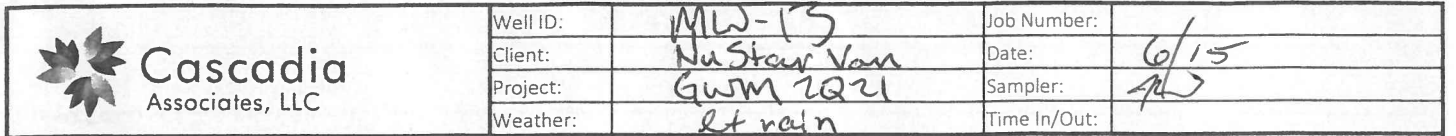 Cascadia
Associates, LLC
Well ID: MW-13 Job Number:
Client: NuStar Van Date: 6/15
Project: GWM 2Q21 Sampler:
Weather: lt rain Time In/Out: